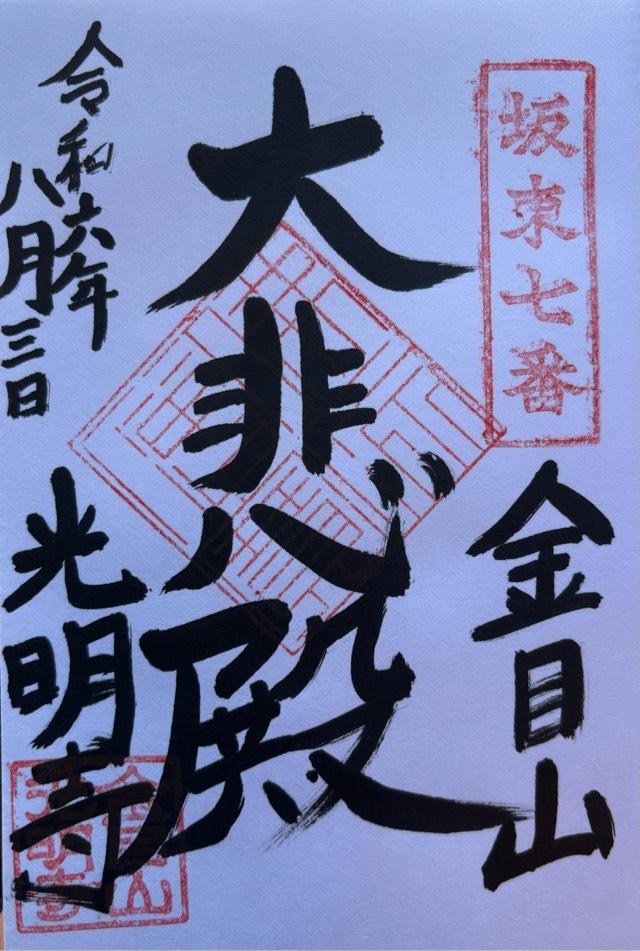 坂東七番
金目山
大悲殿
令和六年
八月三日
光明寺